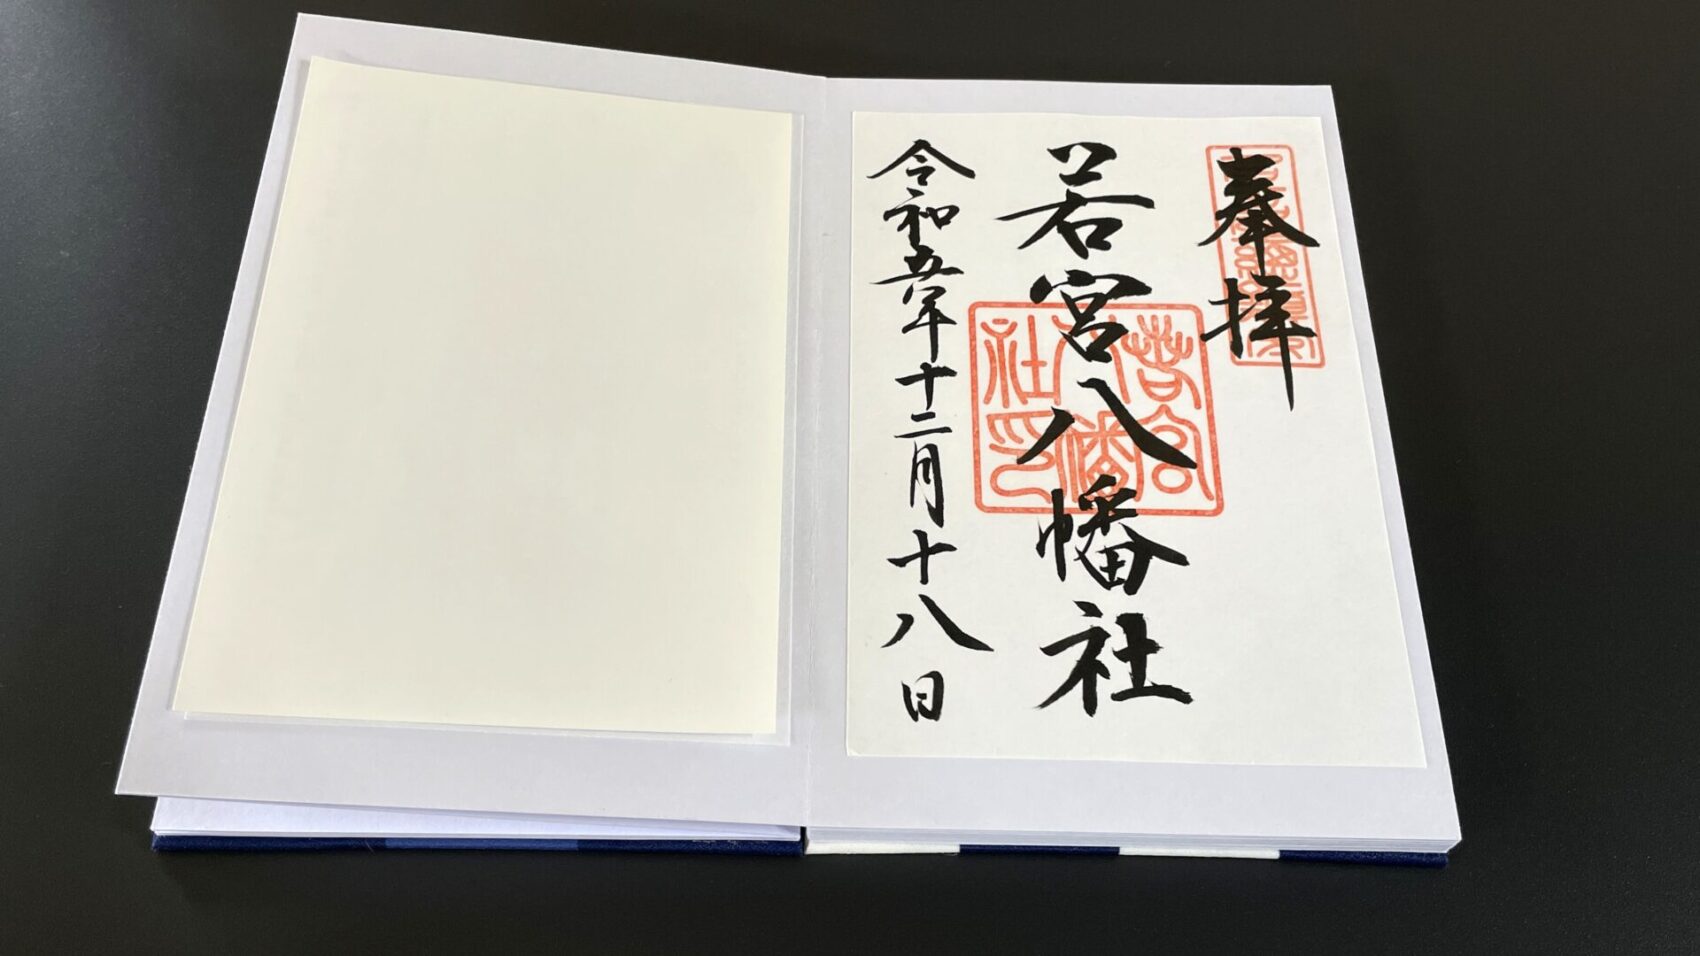 奉拝
若宮八幡社
令和五年十二月十八日
若宮八幡社印